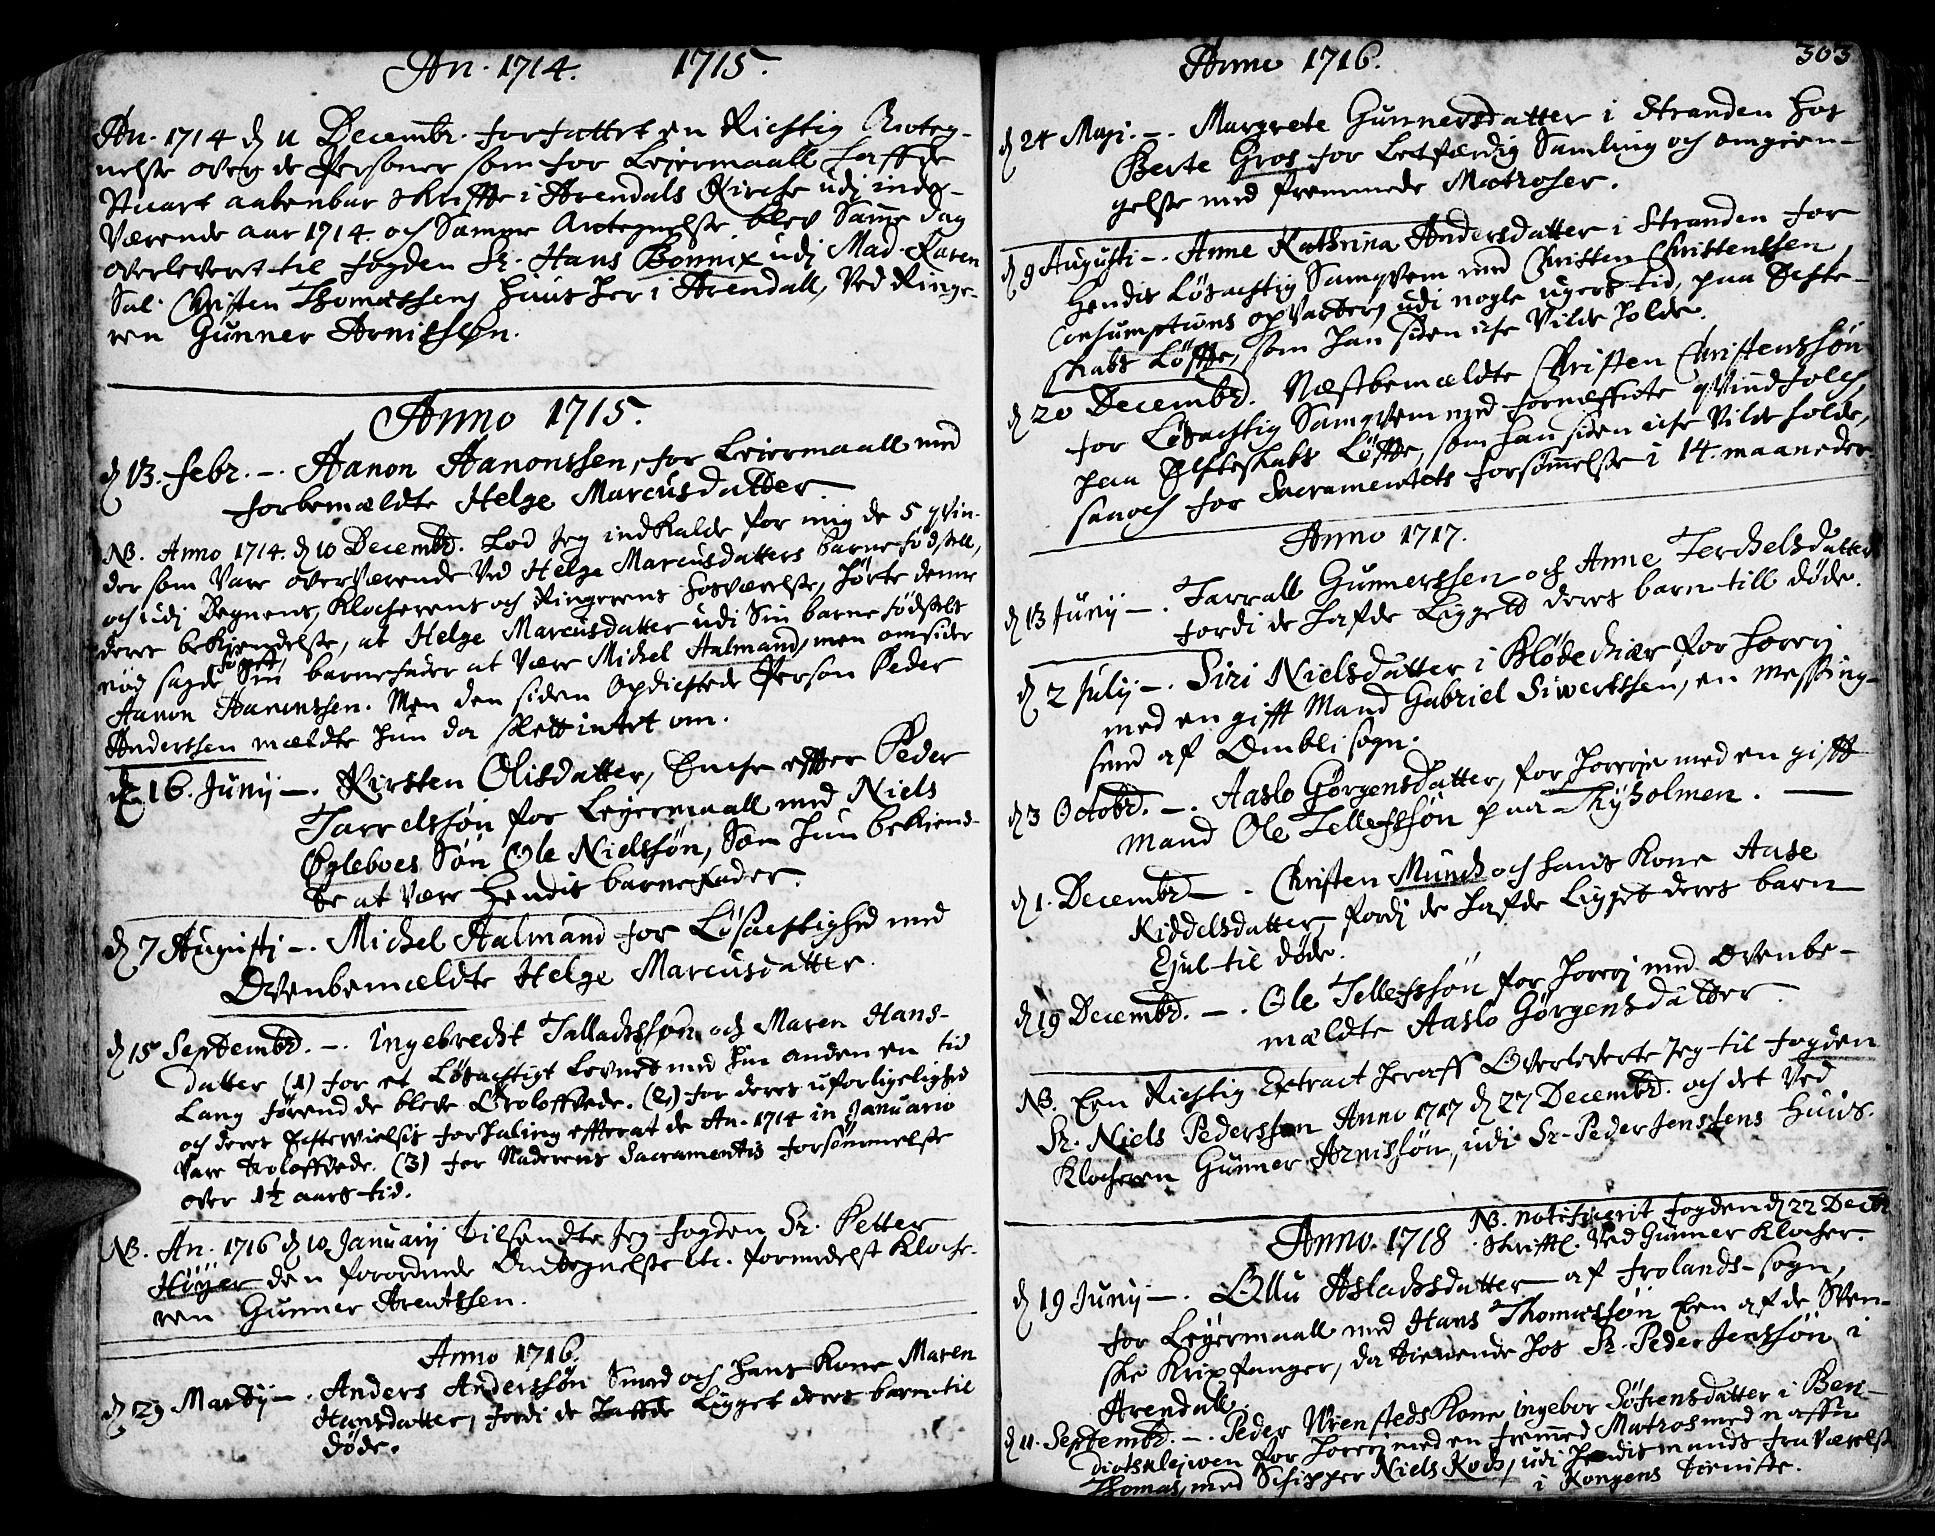 An. 1714. 1715.
An. 1714 d 11 Decembr. forfattet en Rictig Anteg-
nelse over de Personer som for Leiermaall haffde
staaet aabenbar skriffte i Arendals Kirche udj inde-
værende aar 1714. och Samme Antegnelse blev Samme dag
overleveret til fogden Sr. Hans Bonnix udj Mad. Karen
Sal. Christen Thomæssens Huus her i Arendall, Ved Ringe-
ren Gunner Arnitssøn.
Anno 1715.
d 13. febr. -. Aanon Aanonssen, for Leiermaall med
forbemældte Helge Marcusdatter.
NB. Anno 1714. d 10 Decembr. Lod Jeg indkalde for mig de 5 qvin-
der som vare overværende ved Helge Marcusdatters barnefødsell,
och udj Degnens, Klocherens och Ringerens hosværelse, hørte denne
deres bekiendelse, at Helge Marcusdatter udi Sin barnefødsels
nød sagde først Sin barnefader at være Michel Halmand, men omsider
Aanon Aanonssen. Men den siden Opdictede Person Peder
Anderssen mældte hun da slett intet om.
d 16. Junij -. Kirsten Olisdatter, Enche effter Peder
Tarrelssøn for Leyermaall med Niels
Øgleboes Søn Ole Nielssøn, Som hun bekiend-
te at være hendis barnefader.
d 7 Augusti -. Michel Halmand for Løsactighed med
Ovenbemældte Helge Marcusdatter.
d 15 Septembr. -. Ingebrecht Talladssøn och Maren Hans-
datter (1) for et Løsactigt Levned med hin anden en tid
Lang førend de bleve Troloffvede. (2) for deres uforligelighed
och deres Echtevielsis forhaling effterat de An. 1714 in Januario
vare troloffvede. (3) for Naderens Sacramentis forsømmelse
over 1½ aars tid.
NB. An. 1716 d 10 Januarij tilsendte Jeg fogden Sr. Petter
Höyer den forordnede Antegnelse etc. formedelst Kloche-
ren Gunner Arentssen.
Anno 1716.
d 29 Martij -. Anders Anderssøn Smed och hans Kone Maren
Hansdatter, fordi de haffde Ligget deres barn til
døde.
Anno 1716. 303
d 24 Maji. -. Margrete Gunnersdatter i Stranden hos
Berte Gros for Letfærdig Samling och omgien-
gelse med fremmede Matroser.
d 9 Augusti -. Anne Kathrina Andersdatter i Stranden for
hendis Løsactig Samqvem med Christen Christenssen,
Consumptions opvacter, udi nogle ugers tid, paa Echte-
skabs Løffte, som han siden iche vilde holde.
d 20 Decembr. Næstbemældte Christen Christenssøn
for Løsactig Samqvem med forneffnte qvindfolch,
paa Echteskabs Løffte, som han siden iche vilde holde,
sanoch for Sacramentets forsømmelse i 14. maaneder.
Anno 1717.
d 13 Junij -. Tarrall Gunnerssen och Anne Terchelsdatter
fordi de hafde Ligget deres barn till døde.
d 2 Julij -. Siri Nielsdatter i Blødechiær for horerj
med en gifft Mand Gabriel Siwertssen, en Messing-
smed af Ømbli sogn.
d 3 Octobr. -. Aaslo Gørgensdatter, for horerje med en gifft
Mand Ole Tellefssøn paa Thyholmen.
d 1. Decembr. -. Christen Munch och hans Kone Aase
Kiddelsdatter, fordj de hafde Ligget deres barn
Ejul til døde.
d 19 Decembr. -. Ole Tellefssøn for horerj med Ovenbe-
mældte Aaslo Gørgensdatter.
NB. Een Rictig Extract heraff Overleverte Jeg til fogden
Sr. Niels Pederssen Anno 1717 d 27 Decembr. och det ved
Klocheren Gunner Arnissøn, udi Sr. Peder Jenssens Huus.
Anno 1718 NB. Notificerit fogden d 22 Decbr
Skrifftl. ved Gunner Klocher.
d 19 Junij -. Ollu Aslachsdatter af Frolands-sogn,
for Leyermaall med Hans Thomæssøn Een af de Sven-
ske Krixfanger, da tienende hos Sr. Peder Jenssøn i
Arendall.
d 11. Septembr. -. Peder Wrensteds Kone Ingebor Søfrensdatter i Ben-
for horerj med en fremmed Matros med naffn
Thomas, med Schipper Niels Koch, udi hendis mands fraværelse
i Kongens tieniste.